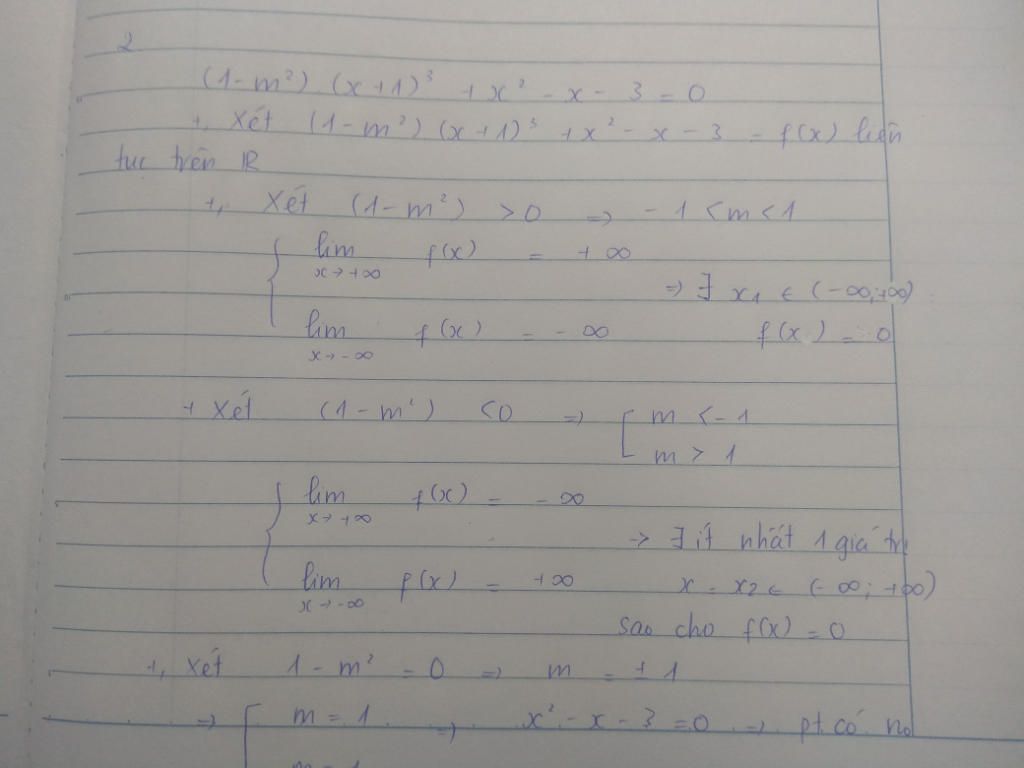 2
(1-m²) (x+1)³ + x² - x - 3 = 0
+, Xét (1-m²) (x+1)³ + x² - x - 3 = f(x) liên
tục trên ℝ
+, Xét (1-m²) > 0 => -1 < m < 1
lim f(x) = +∞
x→+∞
=> ∃ x₁ ∈ (-∞;+∞)
lim f(x) = -∞ f(x) = 0
x→-∞
+ Xét (1-m²) < 0 => [ m < -1
m > 1
lim f(x) = -∞
x→+∞
-> ∃ ít nhất 1 giá trị
lim f(x) = +∞ x = x₂ ∈ (-∞; +∞)
x→-∞
sao cho f(x) = 0
+, Xét 1 - m² = 0 => m = ±1
=> [ m = 1 => x² - x - 3 = 0 => pt có no